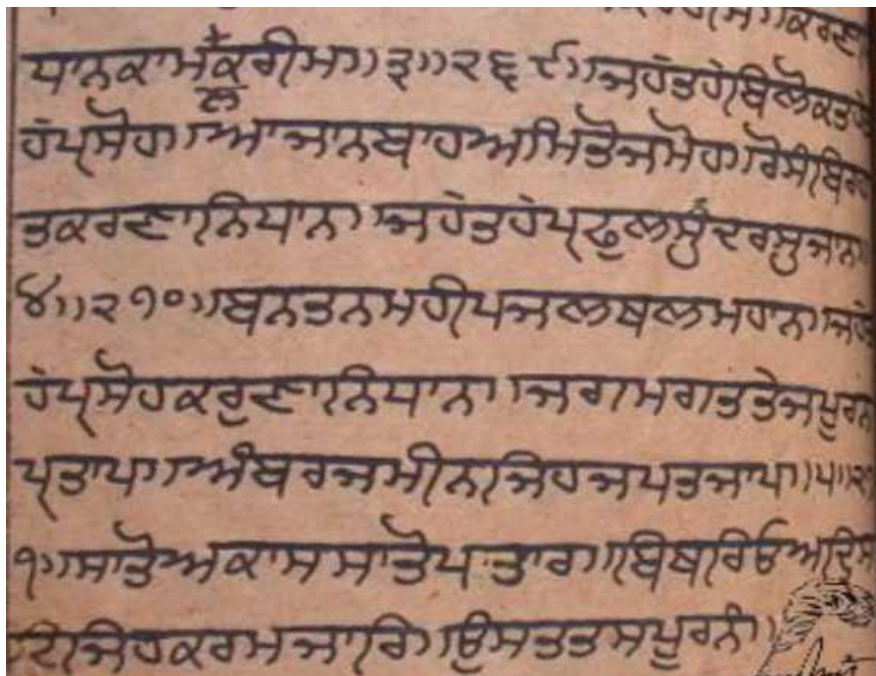 ਧਾਨਕਾਮਕਰੀਮ॥੩॥੨੬੯॥ਜਹਂਤਹਂਬਿਲੋਕਤ
ਹਂਪ੍ਰਸੋਹ॥ਆਜਾਨਬਾਹਅਮਿਤੋਜਮੋਹ॥ਰੋਸੰਬਿਰਹ
ਤਕਰਣਾਨਿਧਾਨ॥ਜਹਂਤਹਂਪ੍ਰਫੁਲਸੁੰਦਰਸੁਜਾਨ
੪॥੨੭੦॥ਬਨਤਨਮਹੀਪਜਲਥਲਮਹਾਨ॥ਜਹਂਤ
ਹਂਪ੍ਰਸੋਹਕਰੁਣਾਨਿਧਾਨ॥ਜਗਮਗਤਤੇਜਪੂਰਨ
ਪ੍ਰਤਾਪ॥ਅੰਬਰਜਮੀਨਜਿਹਜਪਤਜਾਪ॥੫॥੨੭
੧॥ਸਾਤੋਅਕਾਸਸਾਤੋਪਤਾਰ॥ਬਿਥਰਿਓਅਦਿਸ
ਟਿਜਿਹਕਰਮਜਾਰਿ॥ਉਸਤਤਸਪੂਰਨੰ॥